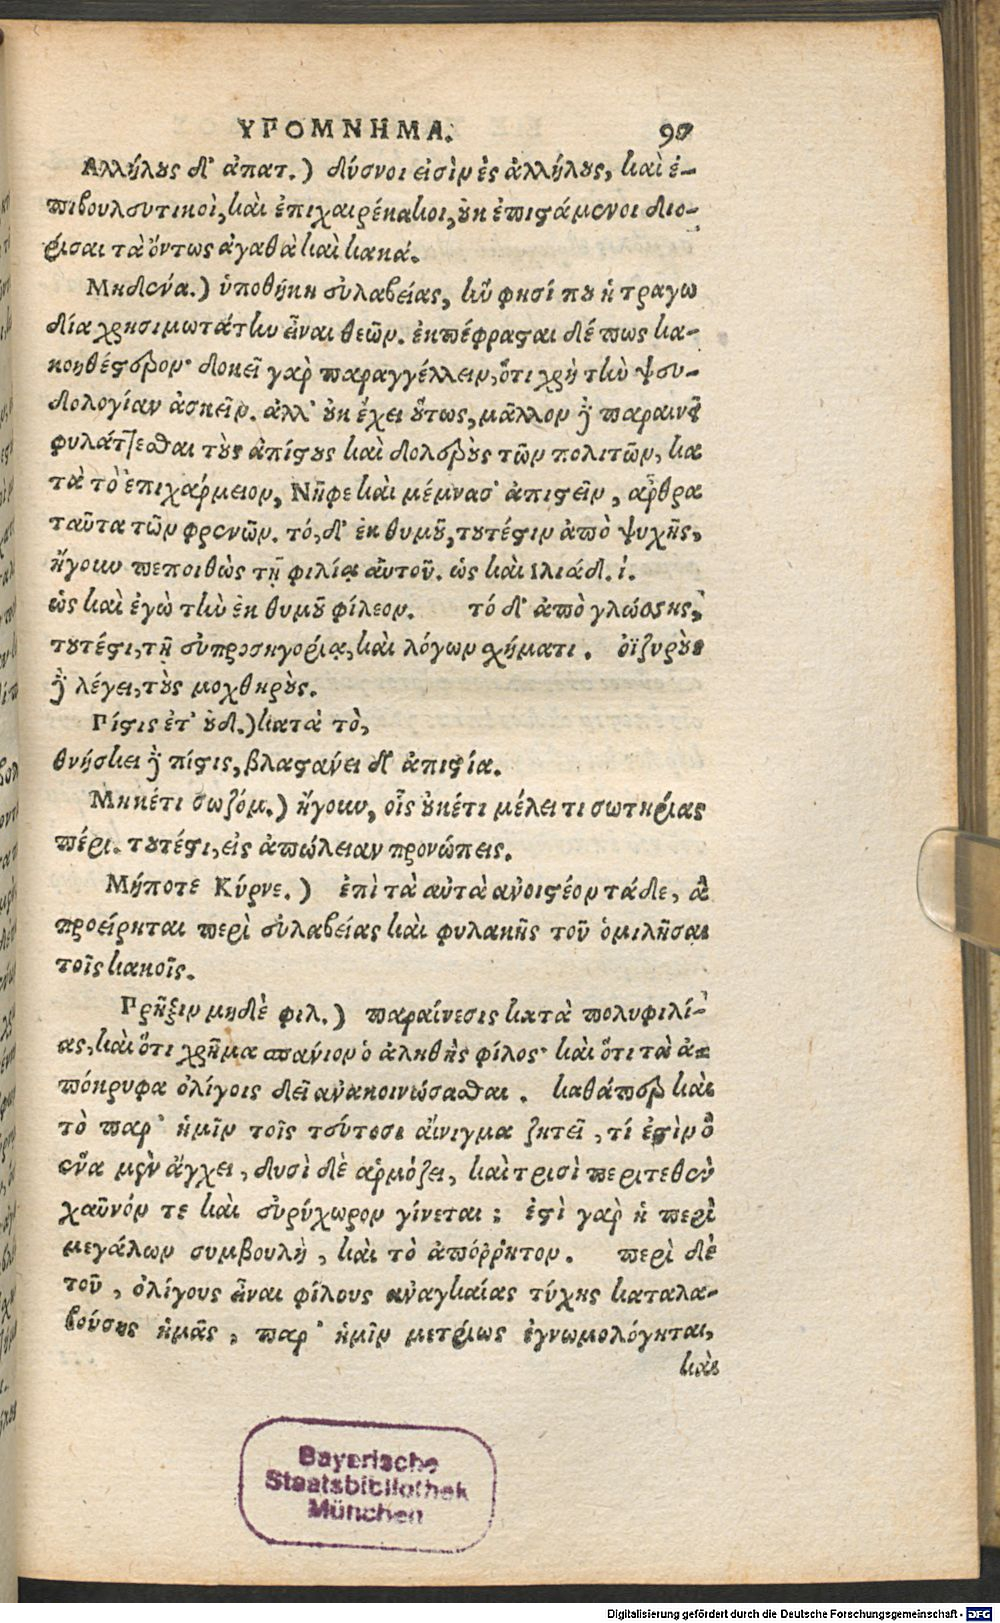 ΥΠΟΜΝΗΜΑ. 97
Αλλήλους δ᾽ ἀπατ.) δύσνοι εἰσὶν ἐς ἀλλήλους, καὶ ἐ-
πιβουλευτικοὶ, καὶ ἐπιχαιρέκακοι, οὐκ ἐπιστάμενοι διο-
ρίσαι τὰ ὄντως ἀγαθὰ καὶ κακά.
Μηδενα.) ὑποθήκη εὐλαβείας, ἣν φησί που ἡ τραγω
δία χρησιμωτάτην εἶναι θεῶν. ἐκπέφρασται δέ πως κα-
κοηθέστερον· δοκεῖ γὰρ παραγγέλλειν, ὅτι χρὴ τὴν ψευ-
δολογίαν ἀσκεῖν. ἀλλ᾽ οὐκ ἔχει οὕτως, μᾶλλον δὲ παραινεῖ
φυλάττεσθαι τοὺς ἀπίστους καὶ δολεροὺς τῶν πολιτῶν, κα
τὰ τὸ ἐπιχάρμειον, Νῆφε καὶ μέμνασ᾽ ἀπιστεῖν, ἄρθρα
ταῦτα τῶν φρενῶν. τό, δ᾽ ἐκ θυμοῦ, τουτέστιν ἀπὸ ψυχῆς,
ἤγουν πεποιθὼς τῇ φιλίᾳ αὐτοῦ. ὡς καὶ Ιλιάδ. ἰ.
ὡς καὶ ἐγὼ τὴν ἐκ θυμοῦ φίλεον. τό δ᾽ ἀπὸ γλώσσης,
τουτέστι, τῇ εὐπροσηγορίᾳ, καὶ λόγων σχήματι. ὀϊζυροὺς
δὲ λέγει, τοὺς μοχθηρούς.
Πίστις ἔτ᾽ οὐδ.) κατὰ τὸ,
θνήσκει δὲ πίστις, βλαστάνει δ᾽ ἀπιστία.
Μηκέτι σωζόμ.) ἤγουν, οἷς οὐκέτι μέλει τι σωτηρίας
πέρι. τουτέστι, εἰς ἀπώλειαν προνώπεις.
Μήποτε Κύρνε.) ἐπὶ τὰ αὐτὰ ἀνοιστέον τάδε, ἃ
προείρηται περὶ εὐλαβείας καὶ φυλακῆς τοῦ ὁμιλῆσαι
τοῖς κακοῖς.
Πρῆξιν μηδὲ φιλ.) παραίνεσις κατὰ πολυφιλί-
ας, καὶ ὅτι χρῆμα σπάνιον ὁ ἀληθὴς φίλος· καὶ ὅτι τὰ ἀ-
πόκρυφα ὀλίγοις δεῖ ἀνακοινώσασθαι. καθάπερ καὶ
τὸ παρ᾽ ἡμῖν τοῖς τεύτοσι αἴνιγμα ζητεῖ, τί ἐστὶν ὃ
ἕνα μὲν ἄγχει, δυσὶ δὲ ἁρμόζει, καὶ τρισὶ περιτεθὲν
χαῦνόν τε καὶ εὐρύχωρον γίνεται; ἐστὶ γὰρ ἡ περὶ
μεγάλων συμβουλὴ, καὶ τὸ ἀπόῤῥητον. περὶ δὲ
τοῦ, ὀλίγους εἶναι φίλους ἀναγκαίας τύχης καταλα-
βούσης ἡμᾶς, παρ᾽ ἡμῖν μετρίως ἐγνωμολόγηται,
καὶ
Bayerische
Staatsbibliothek
München
Digitalisierung gefördert durch die Deutsche Forschungsgemeinschaft - DFG